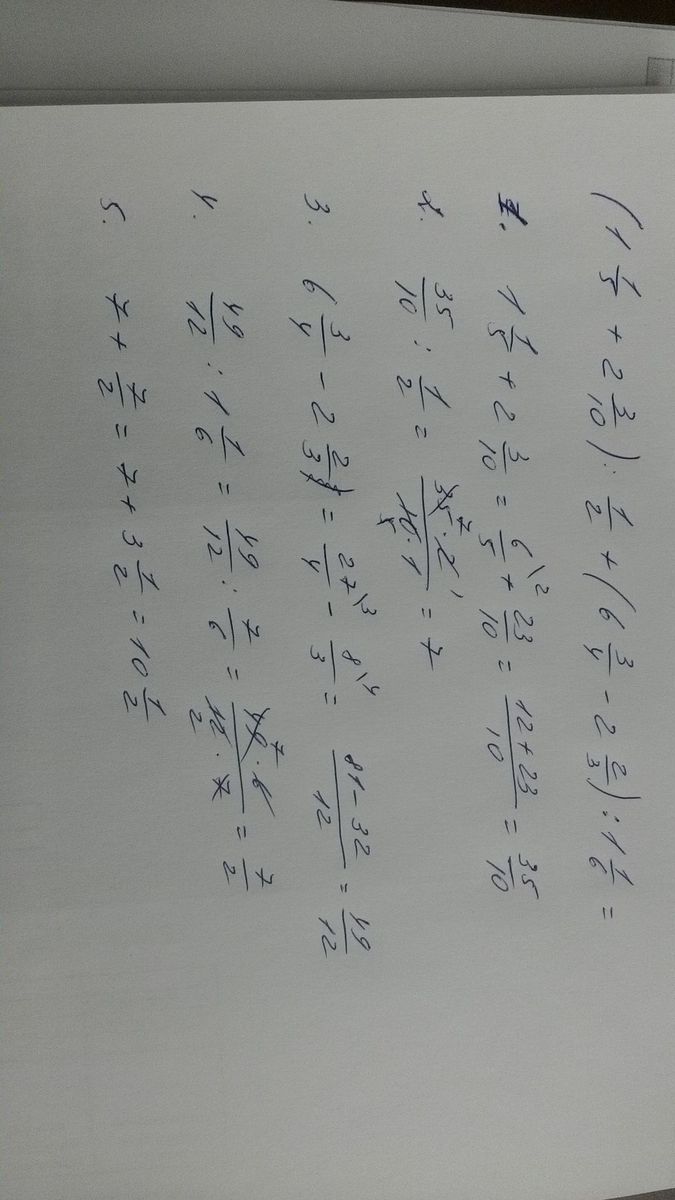 (1 1/5 + 2 3/10) : 1/2 + (6 3/4 - 2 2/3) : 1 1/6 =
1. 1 1/5 + 2 3/10 = 6/5 \2 + 23/10 = 12+23/10 = 35/10
2. 35/10 : 1/2 = 35 7 · 2 1/10 5 · 1 = 7
3. 6 3/4 - 2 2/3 = 27/4 \3 - 8/3 \4 = 81-32/12 = 49/12
4. 49/12 : 1 1/6 = 49/12 : 7/6 = 49 7 · 6/12 2 · 7 = 7/2
5. 7 + 7/2 = 7 + 3 1/2 = 10 1/2